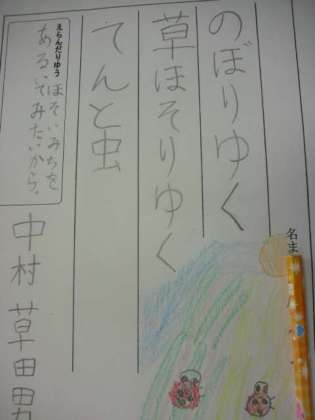 のぼりゆく
草ほそりゆく
てんと虫
えらんだりゆう
ほそいみちを
あるいてみたいから。
中村草田男